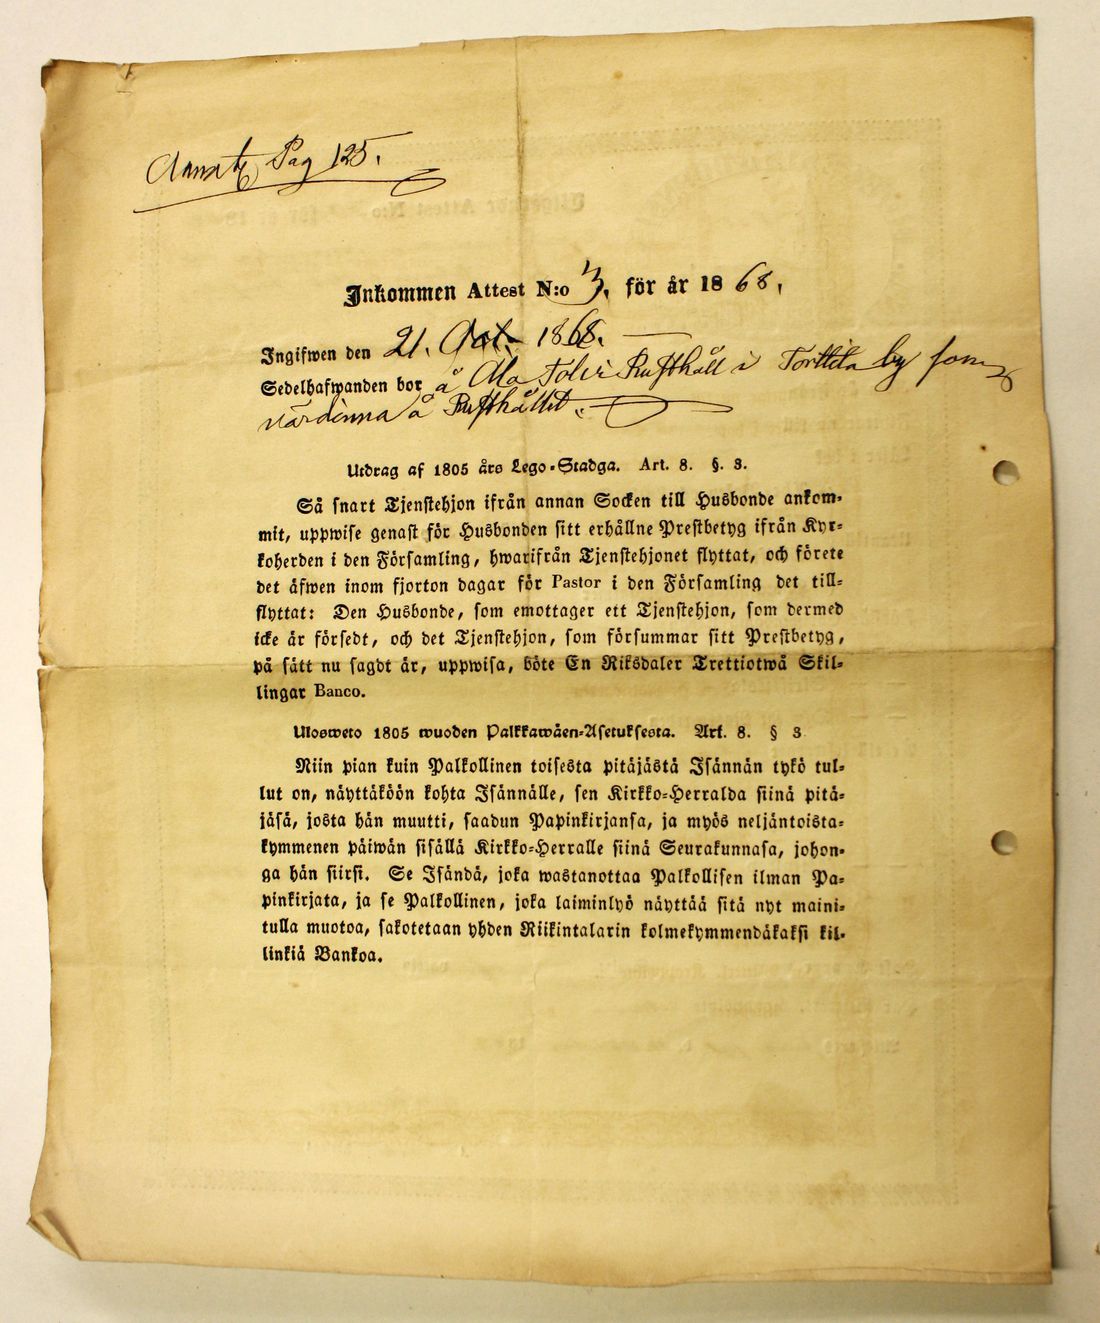 Pag 125.
Inkommen Attest N:o 3. för år 1868.
Ingifwen den 21. Oct. 1868.
Sedelhafwanden bor å Ala Tolvi Rusthåll i Torttila by som
värdinna å Rusthållet.
Utdrag af 1805 års Lego-Stadga. Art. 8. §. 3.
Så snart Tjenstehjon ifrån annan Socken till Husbonde ankom-
mit, uppwise genast för Husbonden sitt erhållne Prestbetyg ifrån Kyr-
koherden i den Församling, hwarifrån Tjenstehjonet flyttat, och förete
det äfwen inom fjorton dagar för Pastor i den Församling det till-
flyttat: Den Husbonde, som emottager ett Tjenstehjon, som dermed
icke är försedt, och det Tjenstehjon, som försummar sitt Prestbetyg,
på sätt nu sagdt är, uppwisa, böte En Riksdaler Trettiotwå Skil-
lingar Banco.
Ulosweto 1805 wuoden Palkkawäen-Asetuksesta. Art. 8. § 3
Niin pian kuin Palkollinen toisesta pitäjästä Isännän tykö tul-
lut on, näyttäköön kohta Isännälle, sen Kirkko-Herralda siinä pitä-
jäsä, josta hän muutti, saadun Papinkirjansa, ja myös neljäntoista-
kymmenen päiwän sisällä Kirkko-Herralle siinä Seurakunnasa, johon-
ga hän siirsi. Se Isändä, joka wastanottaa Palkollisen ilman Pa-
pinkirjata, ja se Palkollinen, joka laiminlyö näyttää sitä nyt maini-
tulla muotoa, sakotetaan yhden Riikintalarin kolmekymmendäkaksi kil-
linkiä Bankoa.